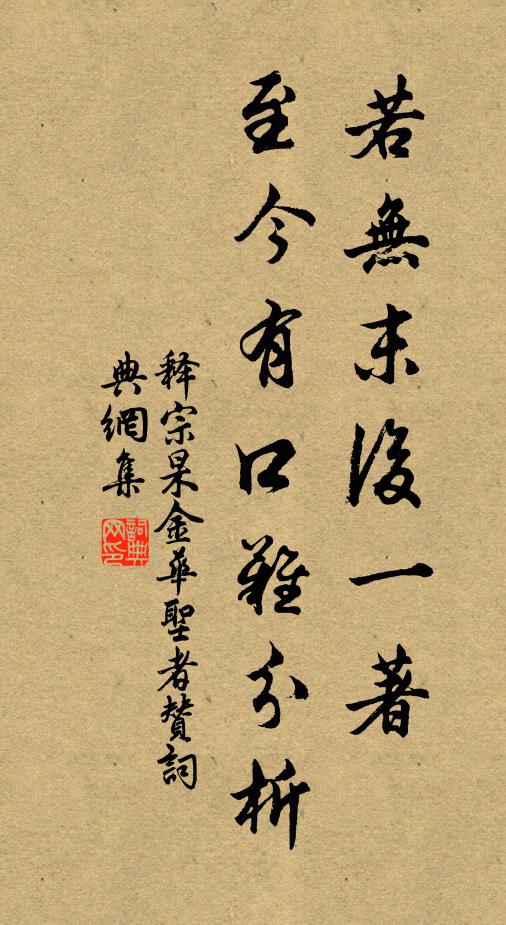 若無末後一著
至今有口難分析
释宗杲金華聖者贊詞
典網集
詞典網印